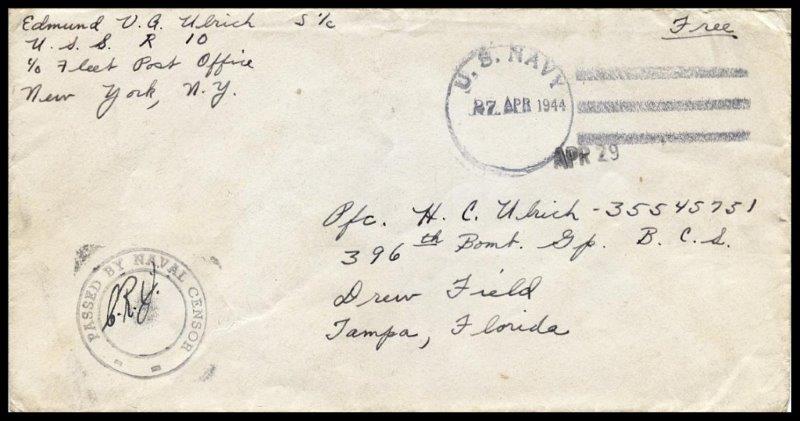 Edmund V. A. Ulrich S 1/c
U. S. S. R 10
c/o Fleet Post Office
New York, N.Y.
Free
U. S. NAVY
27 APR 1944
APR 29
Pfc. H. C. Ulrich - 35545751
396th Bomb. Gp. B. C. S.
Drew Field
Tampa, Florida
PASSED BY NAVAL CENSOR